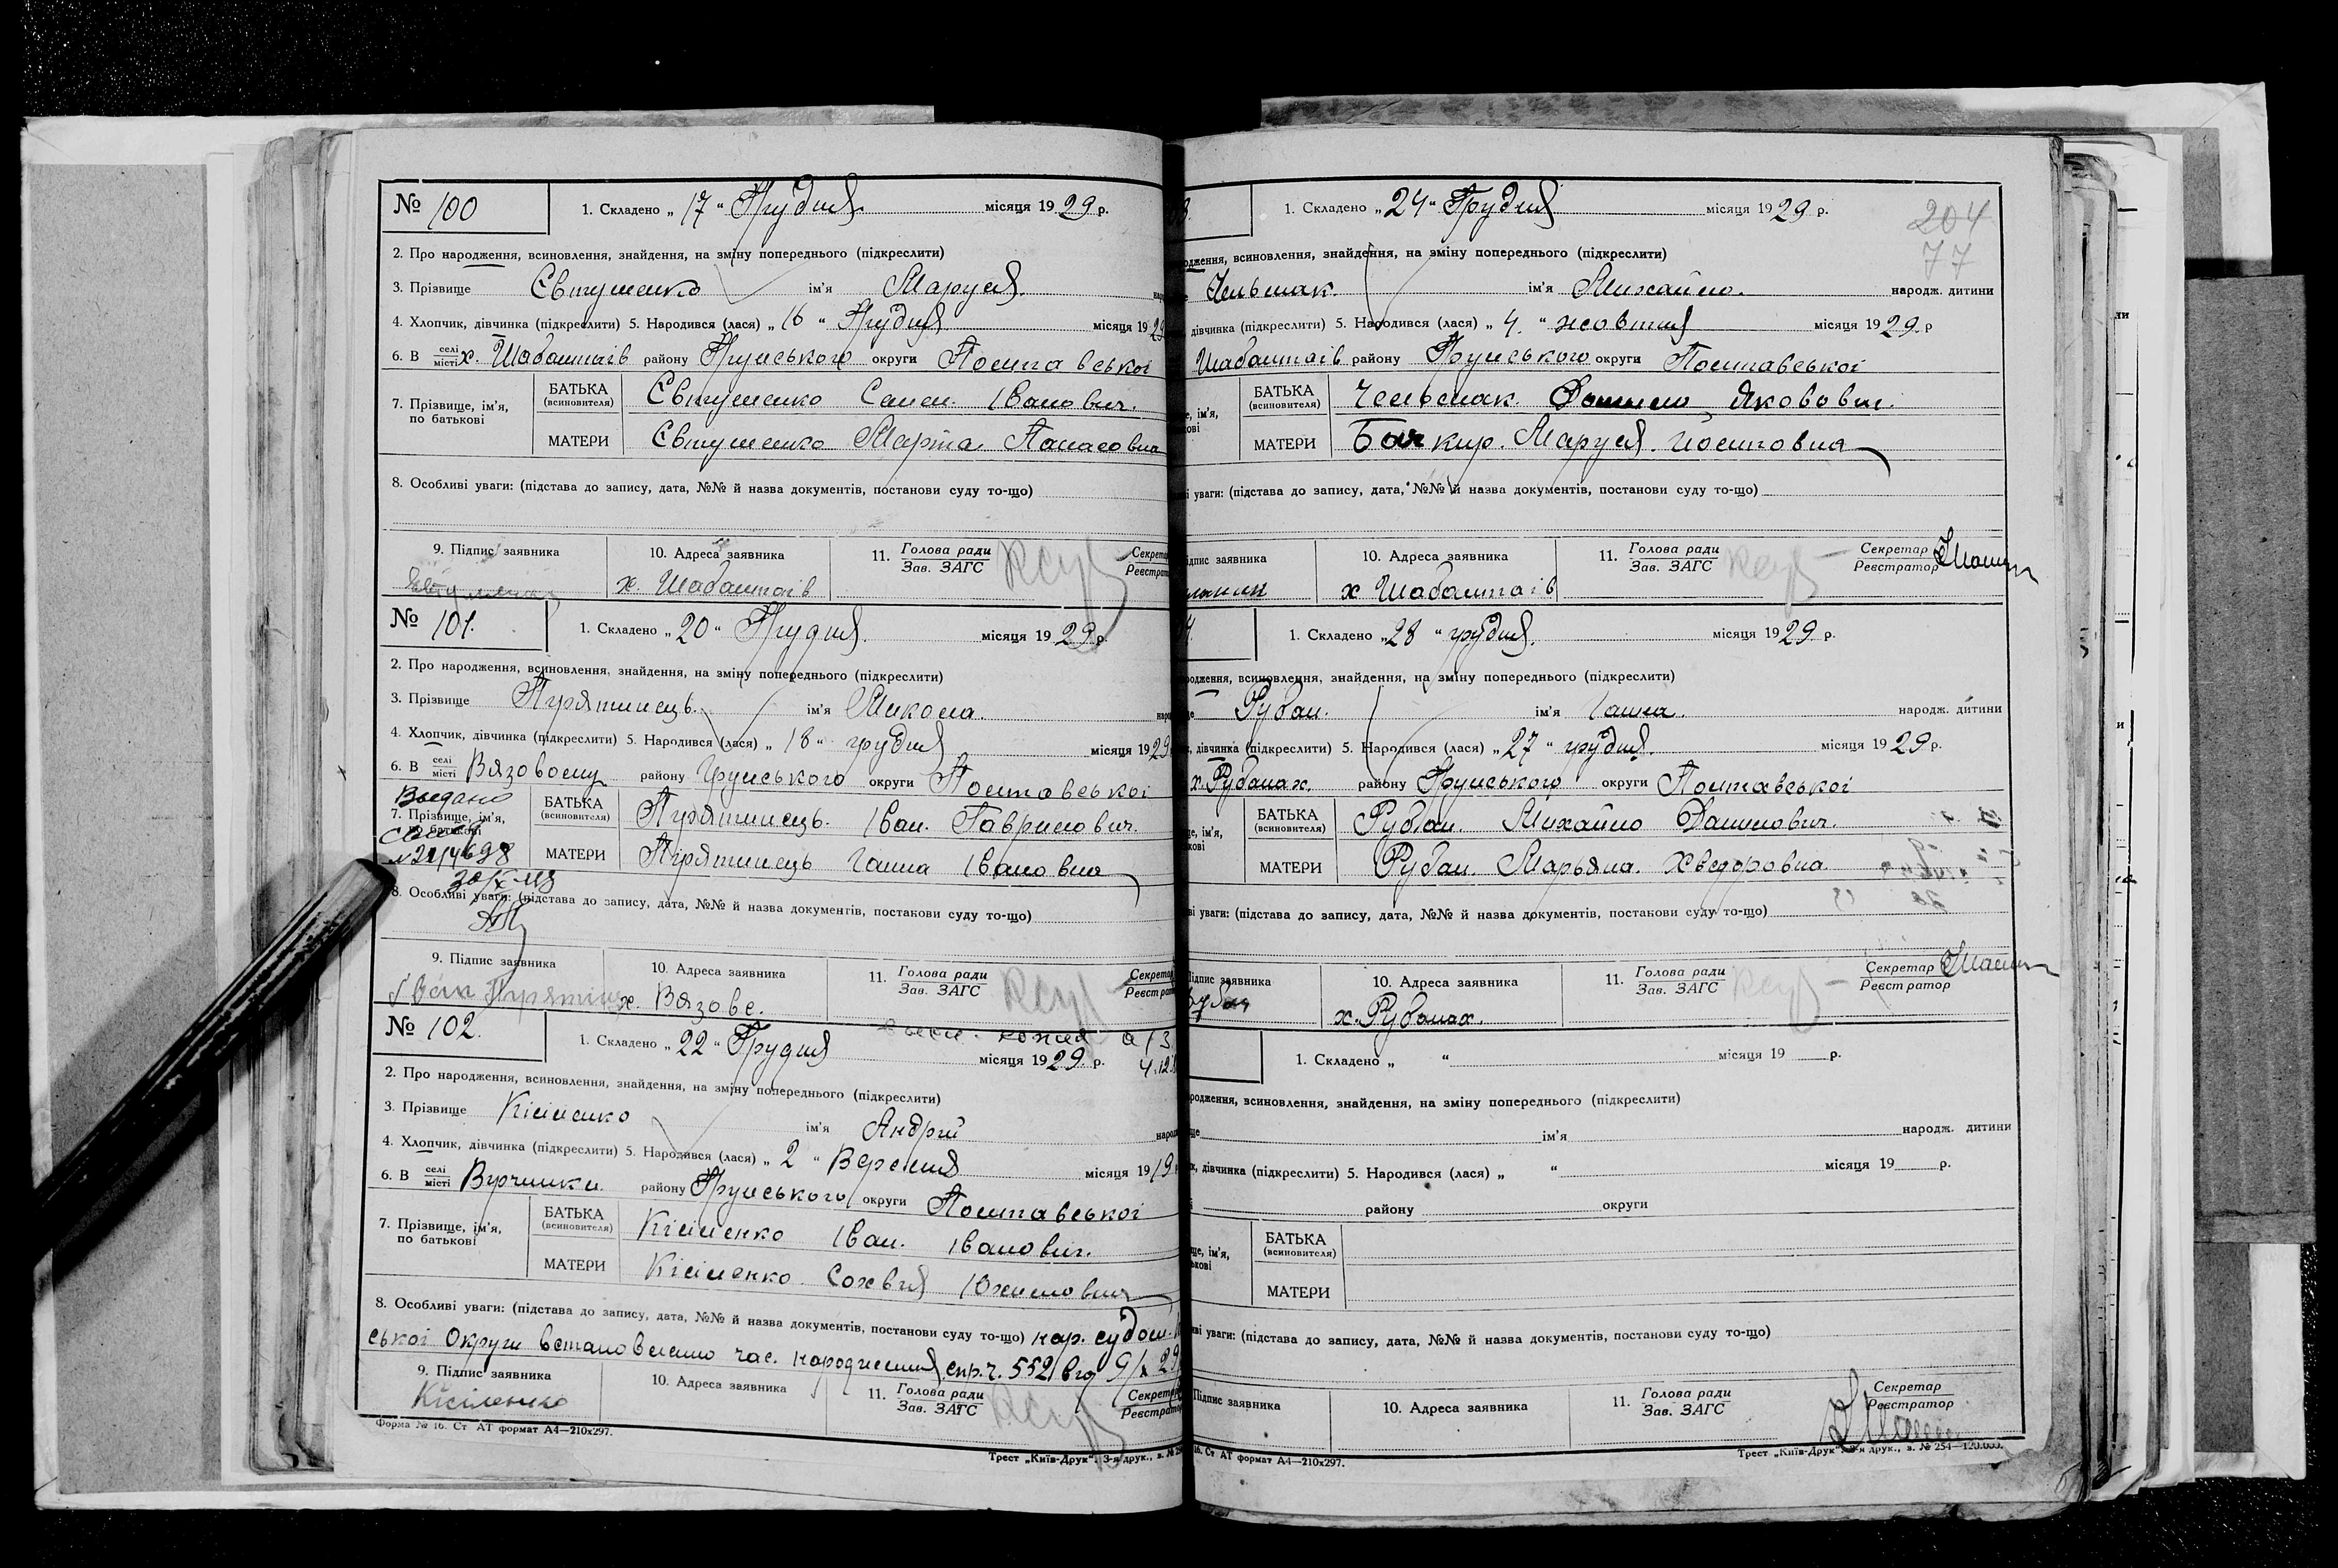 № 100
1. Складено „ 17 “ Грудня місяця 1929 р.
2. Про народження, всиновлення, знайдення, на зміну попереднього (підкреслити)
3. Прізвище Євтушенко ім'я Маруся.
4. Хлопчик, дівчинка (підкреслити) 5. Народився (лася) „ 16 “ Грудня місяця 1929
6. В селі місті х. Шабалтаїв району Грунського округи Полтавської
7. Прізвище, ім'я, по батькові
БАТЬКА (всиновителя) Євтушенко Семен. Іванович.
МАТЕРИ Євтушенко Марта Панасовна
8. Особливі уваги: (підстава до запису, дата, №№ й назва документів, постанови суду то-що)
9. Підпис заявника
10. Адреса заявника х. Шабалтаїв
11. Голова ради Зав. ЗАГС
№ 101.
1. Складено „ 20 “ Грудня. місяця 1929 р.
2. Про народження, всиновлення, знайдення, на зміну попереднього (підкреслити)
3. Прізвище Пирятинець. ім'я Микола.
4. Хлопчик, дівчинка (підкреслити) 5. Народився (лася) „ 18 “ грудня місяця 1929
6. В селі місті Вязовому району Грунського округи Полтавської
Выдано
7. Прізвище, ім'я, по батькові
БАТЬКА (всиновителя) Пирятинець. Іван. Гаврилович.
МАТЕРИ Пирятинець Ганна Івановна
8. Особливі уваги: (підстава до запису, дата, №№ й назва документів, постанови суду то-що)
9. Підпис заявника Іван
10. Адреса заявника х. Вязове.
11. Голова ради Зав. ЗАГС
№ 102.
1. Складено „ 22 “ Грудня місяця 1929 р.
2. Про народження, всиновлення, знайдення, на зміну попереднього (підкреслити)
3. Прізвище Кісіленко ім'я Андрій
4. Хлопчик, дівчинка (підкреслити) 5. Народився (лася) „ 2 “ Вересня місяця 1919
6. В селі місті району Грунського округи Полтавської
7. Прізвище, ім'я, по батькові
БАТЬКА (всиновителя) Кісіленко Іван. Іванович.
МАТЕРИ Кісіленко Сохвія Юхимовна
8. Особливі уваги: (підстава до запису, дата, №№ й назва документів, постанови суду то-що) нар. судом
ської Округи встановлено час. народження, спр. ч. 552
9. Підпис заявника Кісіленко
10. Адреса заявника
11. Голова ради Зав. ЗАГС
Форма № 16. Ст АТ формат А4—210х297.
Трест „Київ-Друк“. 3-я друк.,
204
77
1. Складено „ 24 “ Грудня місяця 1929 р.
всиновлення, знайдення, на зміну попереднього (підкреслити)
ім'я Михайло. народж. дитини
дівчинка (підкреслити) 5. Народився (лася) „ 4. “ жовтня місяця 1929. р
Шабалтаїв району Грунського округи Полтавської
БАТЬКА (всиновителя) Данило Якович.
МАТЕРИ Маруся. Йосиповна
уваги: (підстава до запису, дата, №№ й назва документів, постанови суду то-що)
заявника
10. Адреса заявника х Шабалтаїв
11. Голова ради Зав. ЗАГС
Секретар Реєстратор
1. Складено „ 28 “ грудня. місяця 1929 р.
всиновлення, знайдення, на зміну попереднього (підкреслити)
Рубан. ім'я Ганна. народж. дитини
дівчинка (підкреслити) 5. Народився (лася) „ 27 “ грудня. місяця 1929 р.
х. Рубанах. району Грунського округи Полтавської
БАТЬКА (всиновителя) Рубан. Михайло Данилович.
МАТЕРИ Рубан. Марьяна. Хведоровна.
уваги: (підстава до запису, дата, №№ й назва документів, постанови суду то-що)
заявника
10. Адреса заявника х. Рубанах.
11. Голова ради Зав. ЗАГС
Секретар Реєстратор
1. Складено „ “ місяця 19 р.
всиновлення, знайдення, на зміну попереднього (підкреслити)
ім'я народж. дитини
дівчинка (підкреслити) 5. Народився (лася) „ “ місяця 19 р.
району округи
БАТЬКА (всиновителя)
МАТЕРИ
уваги: (підстава до запису, дата, №№ й назва документів, постанови суду то-що)
Підпис заявника
10. Адреса заявника
11. Голова ради Зав. ЗАГС
Секретар Реєстратор
16. Ст АТ формат А4—210х297.
Трест „Київ-Друк“. 3-я друк., з. № 254—120.000.